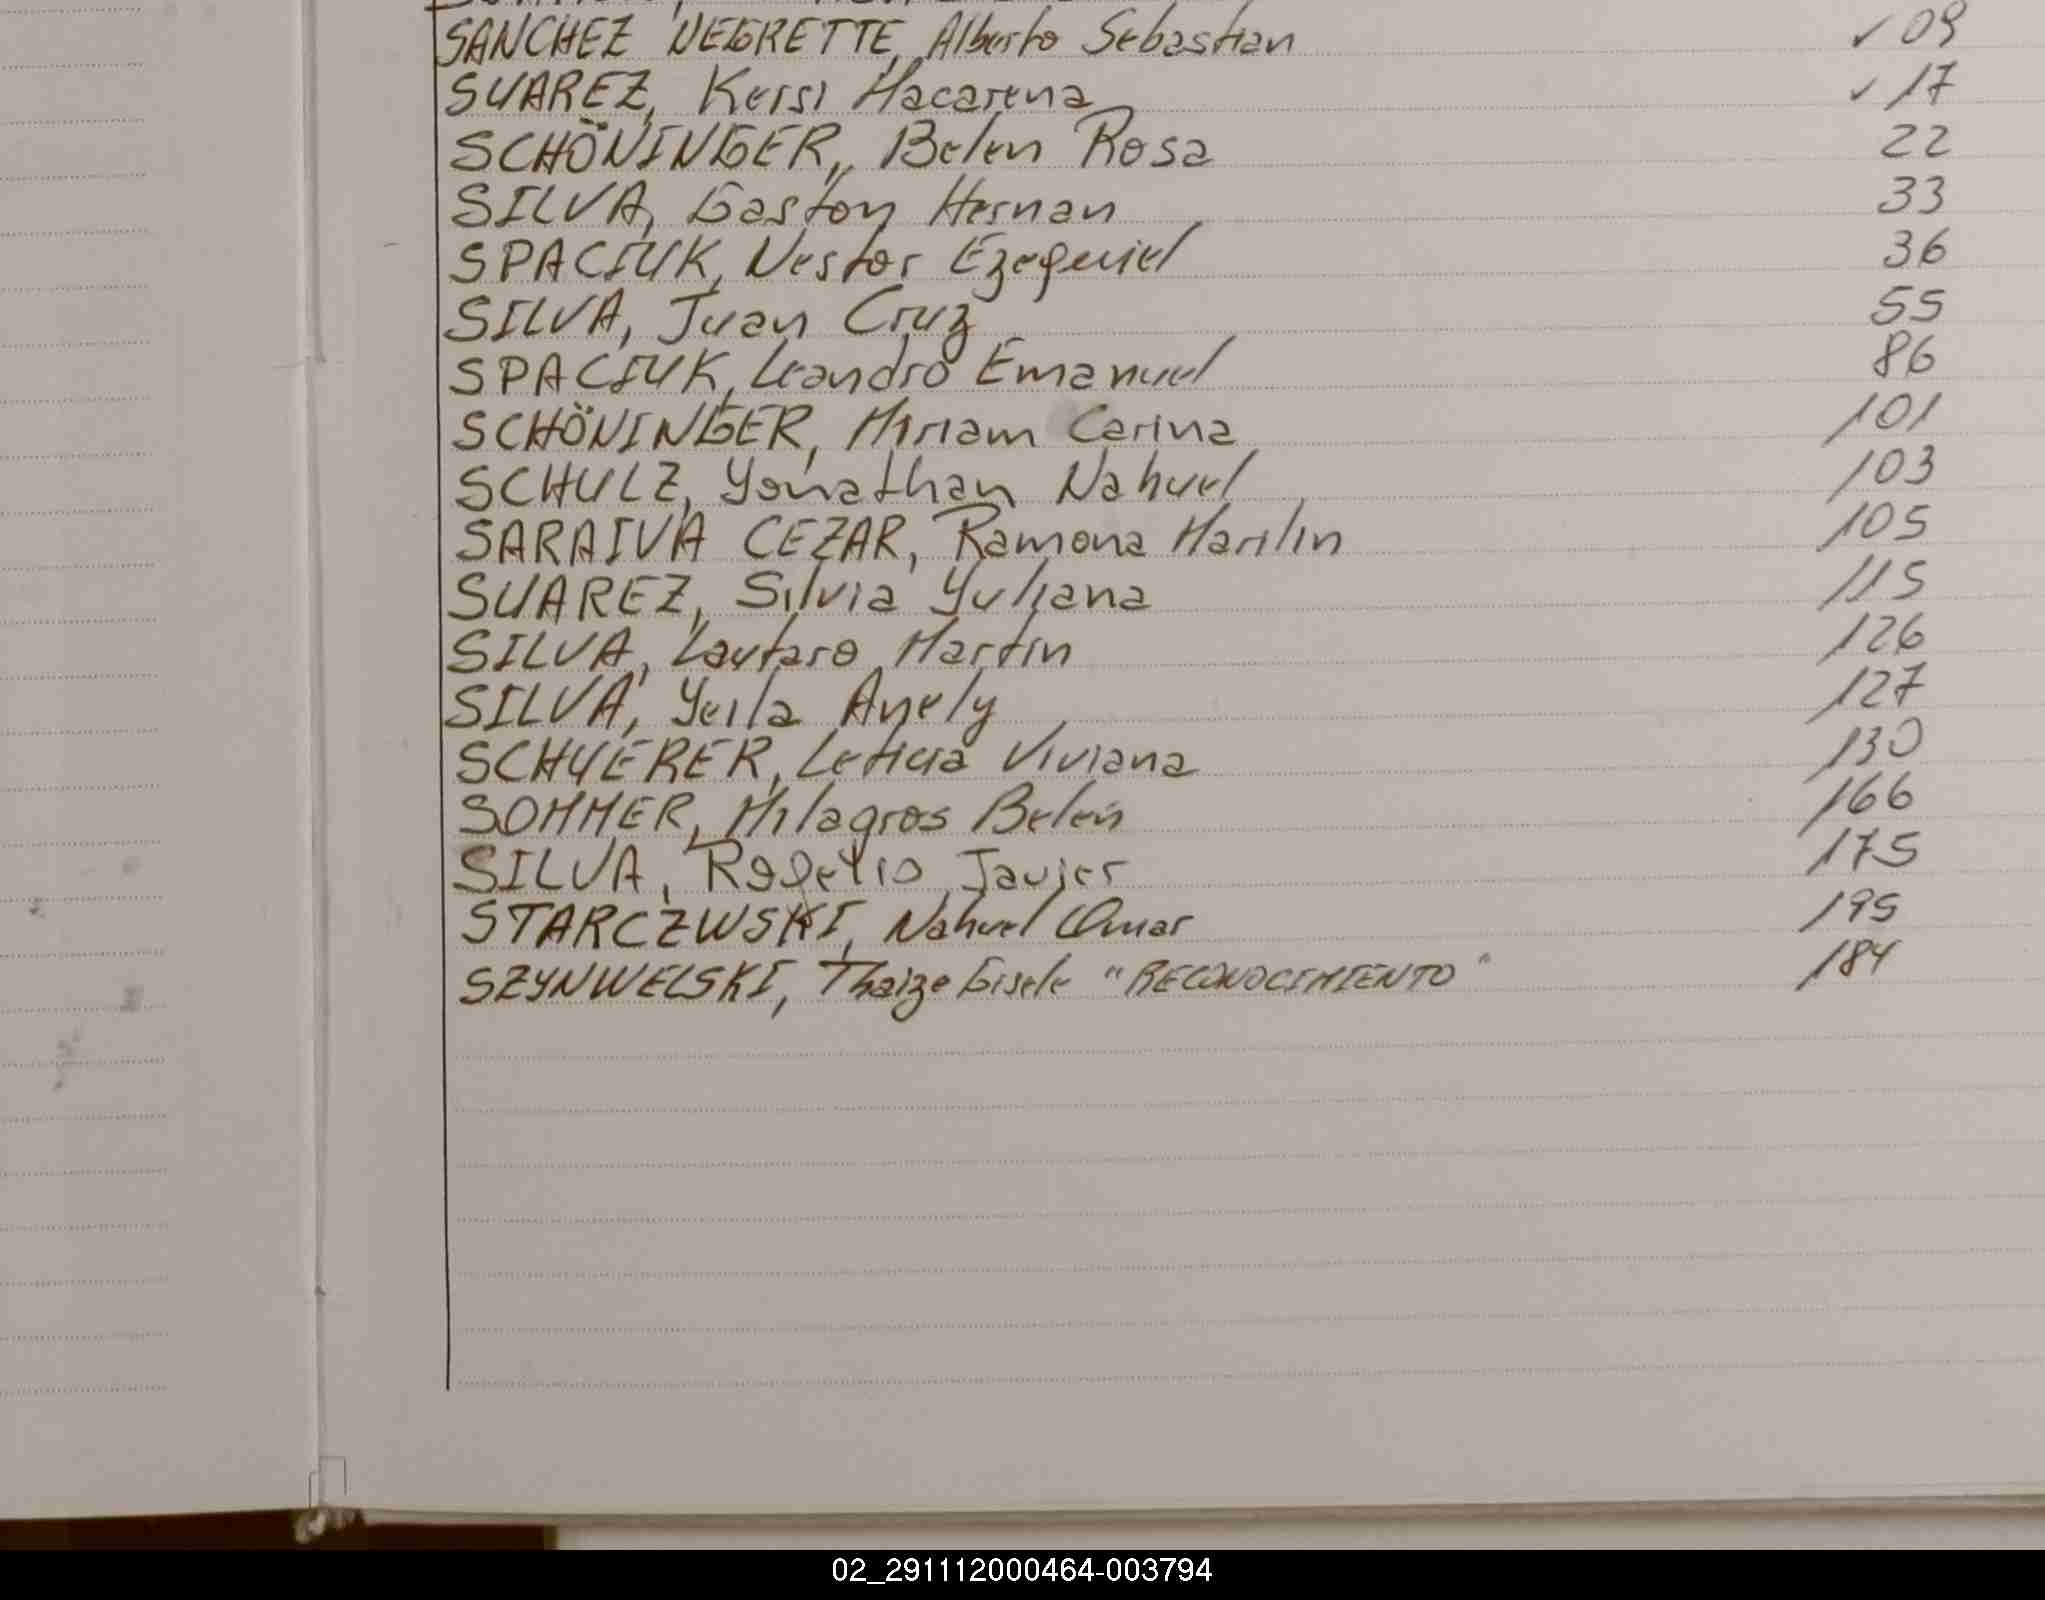 SANCHEZ NEGRETTE, Alberto Sebastian ✓ 09
SUAREZ, Kersi Macarena ✓ 17
SCHÖNINGER, Belen Rosa 22
SILVA, Gaston Hernan 33
SPACIUK, Nestor Ezequiel 36
SILVA, Juan Cruz 55
SPACIUK, Leandro Emanuel 86
SCHÖNINGER, Miriam Carina 101
SCHULZ, Yonathan Nahuel 103
SARAIVA CEZAR, Ramona Marilin 105
SUAREZ, Silvia Yuliana 115
SILVA, Lautaro Martin 126
SILVA, Yeila Anely 127
SCHYERER, Leticia Viviana 130
SOMMER, Milagros Belén 166
SILVA, Rogelio Javier 175
STARCZWSKI, Nahuel Omar 195
SZYNWELSKI, Thaize Gisele "RECONOCIMIENTO" 184
02_291112000464-003794